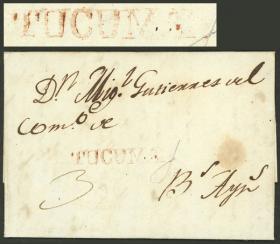 TUCUMA
Dn. Migl. Gutierres del
Como. de
TUCUMA
3
Bs. Ays.